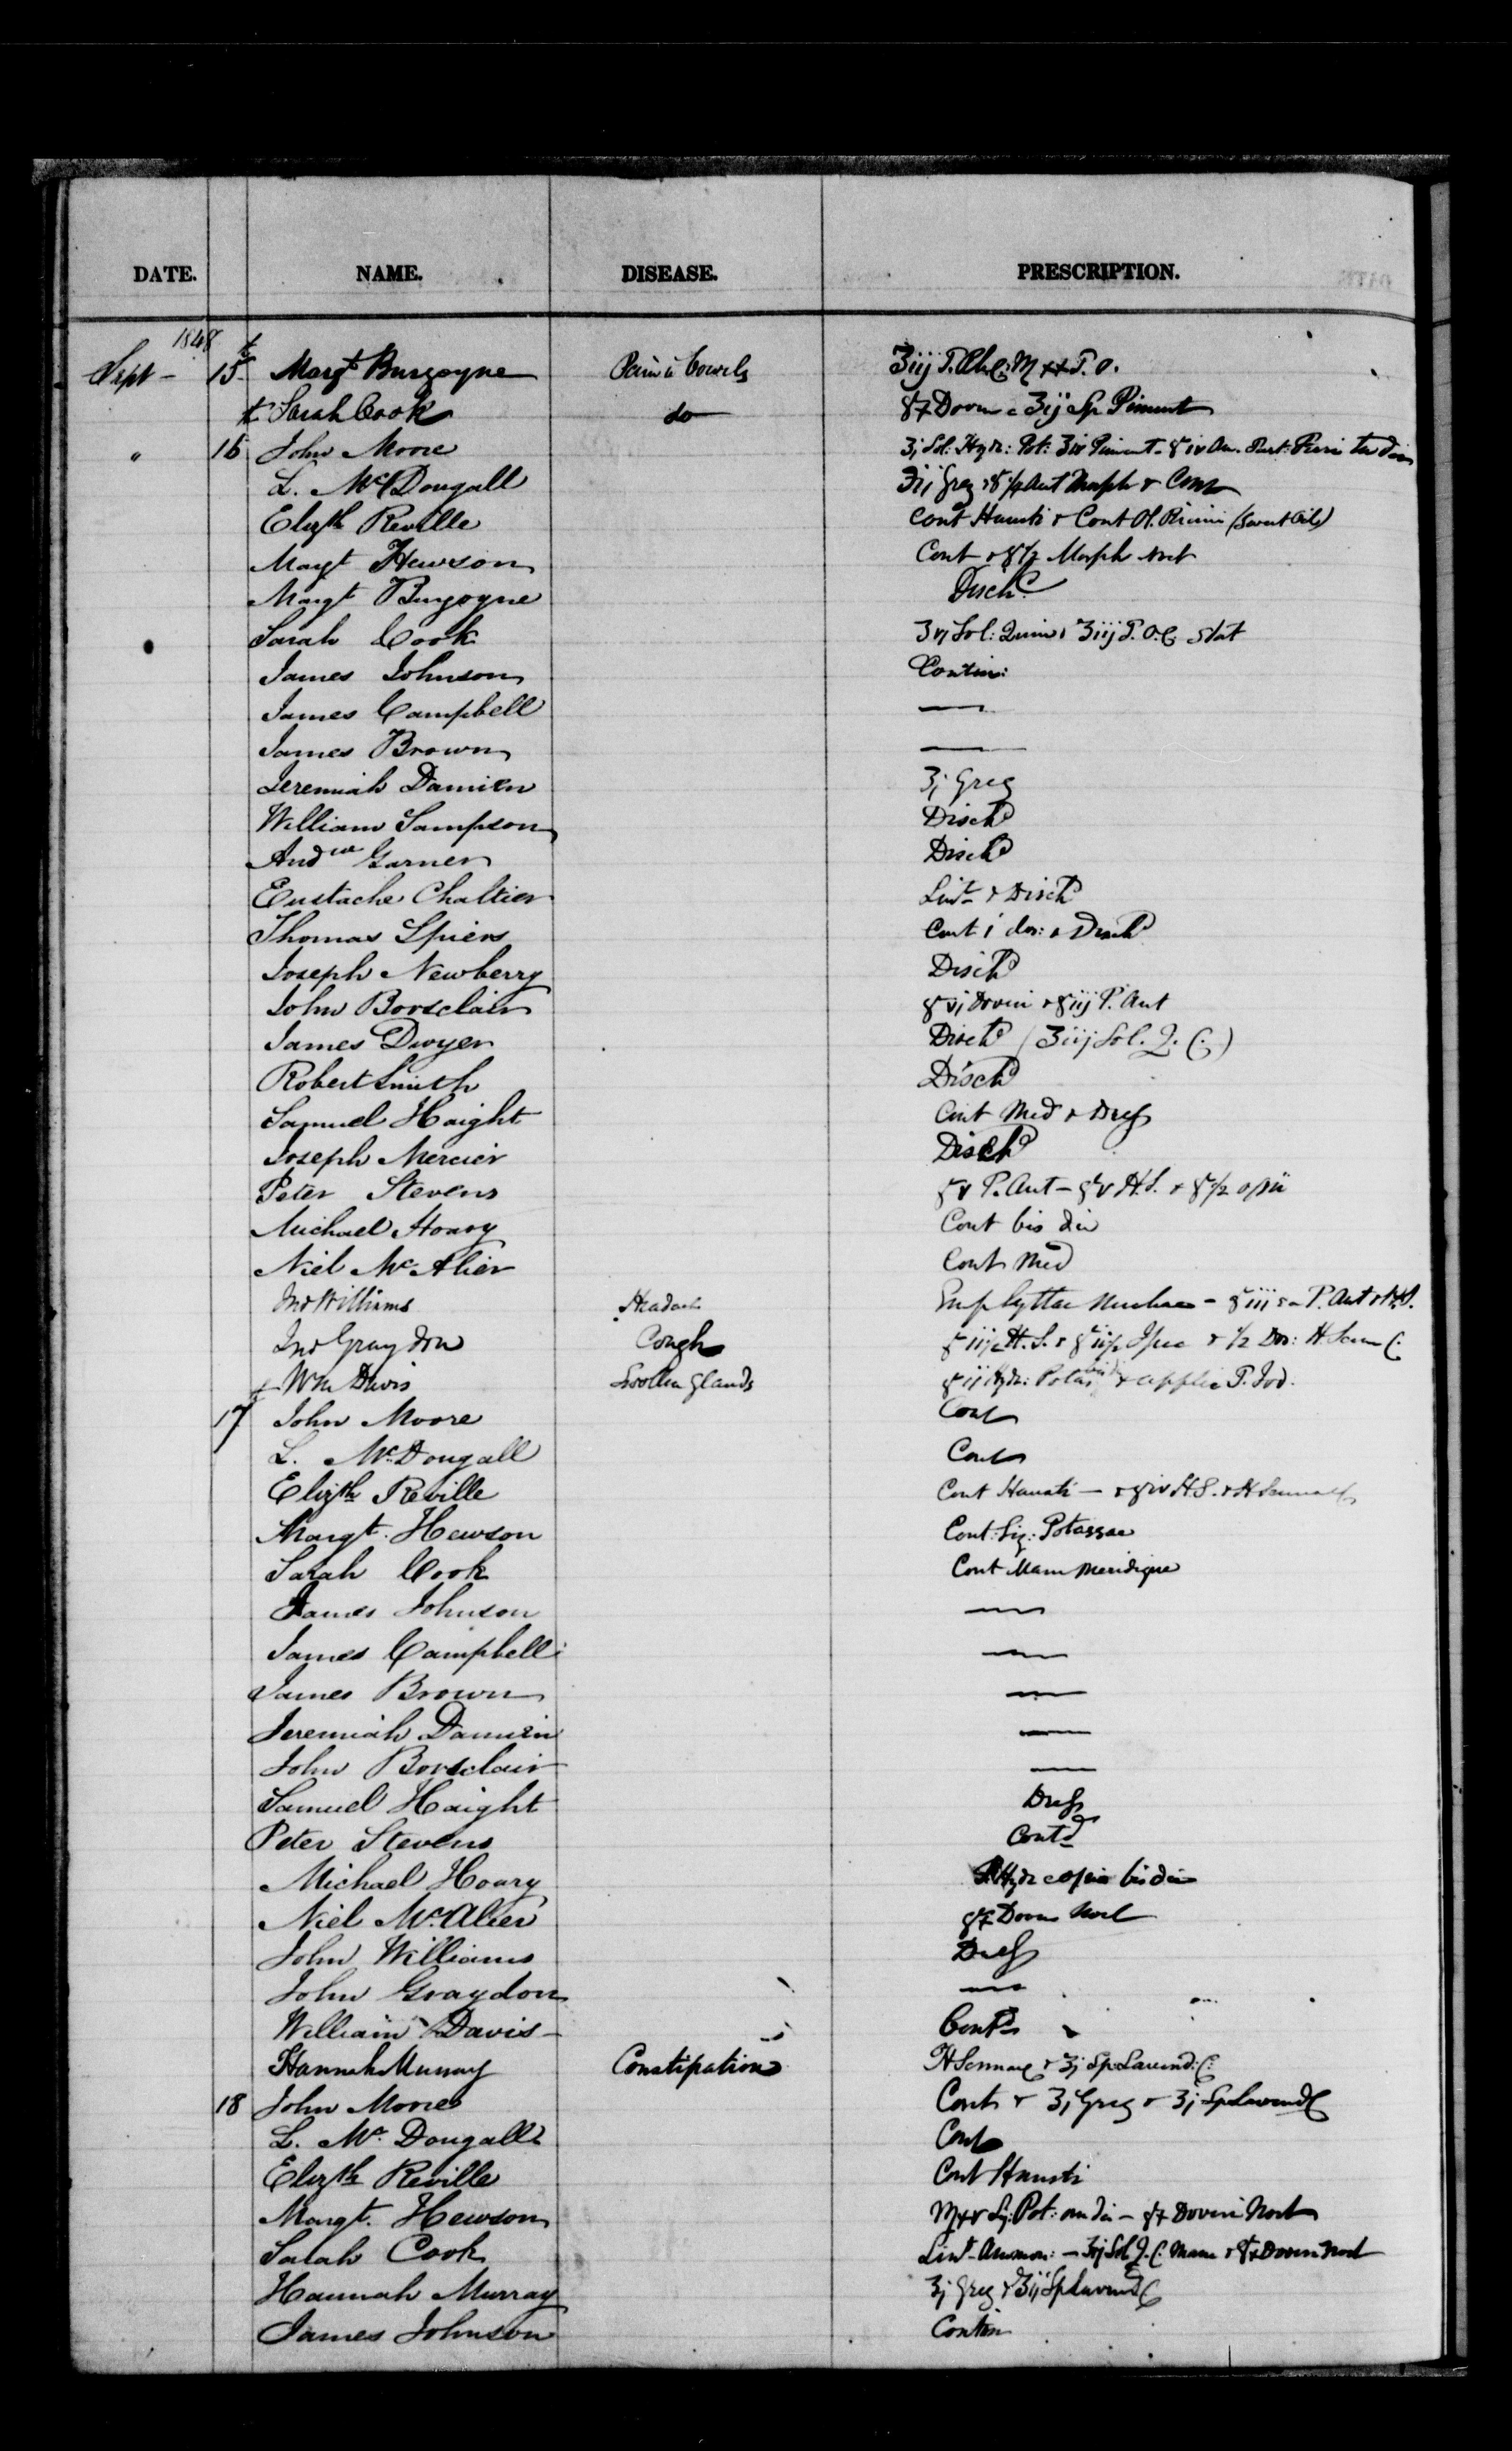 DATE. NAME. DISEASE. PRESCRIPTION.
1848
Sept - 15 Margt Burgoyne Pain in bowels ʒiij T. Rh. C. M xx T. O.
Sarah Cook do gr x Doveri c ʒij Sp Piment
" 16 John Moore ʒj Sol: Hydr: Pot: ʒiv Piment - gr iv
L. McDougall ʒij Greg & gr 1/4 Morph & Cont
Elizth Reville Cont Hausti & Cont Ol. Ricini (Sweet Oil)
Margt Hewson Cont & gr 1/2 Morph noct
Margt Burgoyne Dischd
Sarah Cook Sol: Quin & ʒiij T. O. C stat
James Johnson Contin:
James Campbell —
James Brown —
Jeremiah Damien ʒj Greg
William Sampson Dischd
Andw Garner Dischd
Eustache Chaltier Lint & Dischd
Thomas Spiers Cont i dos: & Dischd
Joseph Newberry Dischd
John Borsclair gr vj Doveri & gr iij P. Ant
James Dwyer Dischd (ʒiij Sol. Q. C:)
Robert Smith Dischd
Samuel Haight Cont Med & Dress
Joseph Mercier Dischd
Peter Stevens gr v P. Ant - gr v H. S. & gr 1/2 opii
Michael Hoary Cont bis die
Niel McAlier Cont Med
Jno Williams Headach Emp Lyttae Nuchae - gr iii P. Ant & H. S.
Jno Graydon Cough H. S. & Ipec & 1/2 Dos: H. Senn C:
Wm Davis Swollen Glands gr ij Hydr: Potas bis die & applic T. Iod.
17 John Moore Cont
L. McDougall Cont
Elizth Reville Cont Hausti - & gr iv H. S. & H Sennae
Margt. Hewson Cont: Liq: Potassae
Sarah Cook Cont Mane Meridique
James Johnson —
James Campbell —
James Brown —
Jeremiah Damien —
John Borsclair —
Samuel Haight Dress
Peter Stevens Contd
Michael Hoary Hydr c opio bis die
Niel McAlier gr x Doveri Noct
John Williams Dress
John Graydon —
William Davis - Contd
Hannah Murray Constipation H Sennae & ʒj Sp Lavend: C:
18 John Moore Cont & ʒj Greg & ʒj Sp Lavend C
L. McDougall Cont
Elizth Reville Cont Hausti
Margt. Hewson M xv Liq: Pot: - gr x Doveri Noct
Sarah Cook Lint Ammon: - ʒij Sol Q. C: Mane & gr x Doveri Noct
Hannah Murray ʒj Greg & ʒij Sp Lavend C
James Johnson Contin